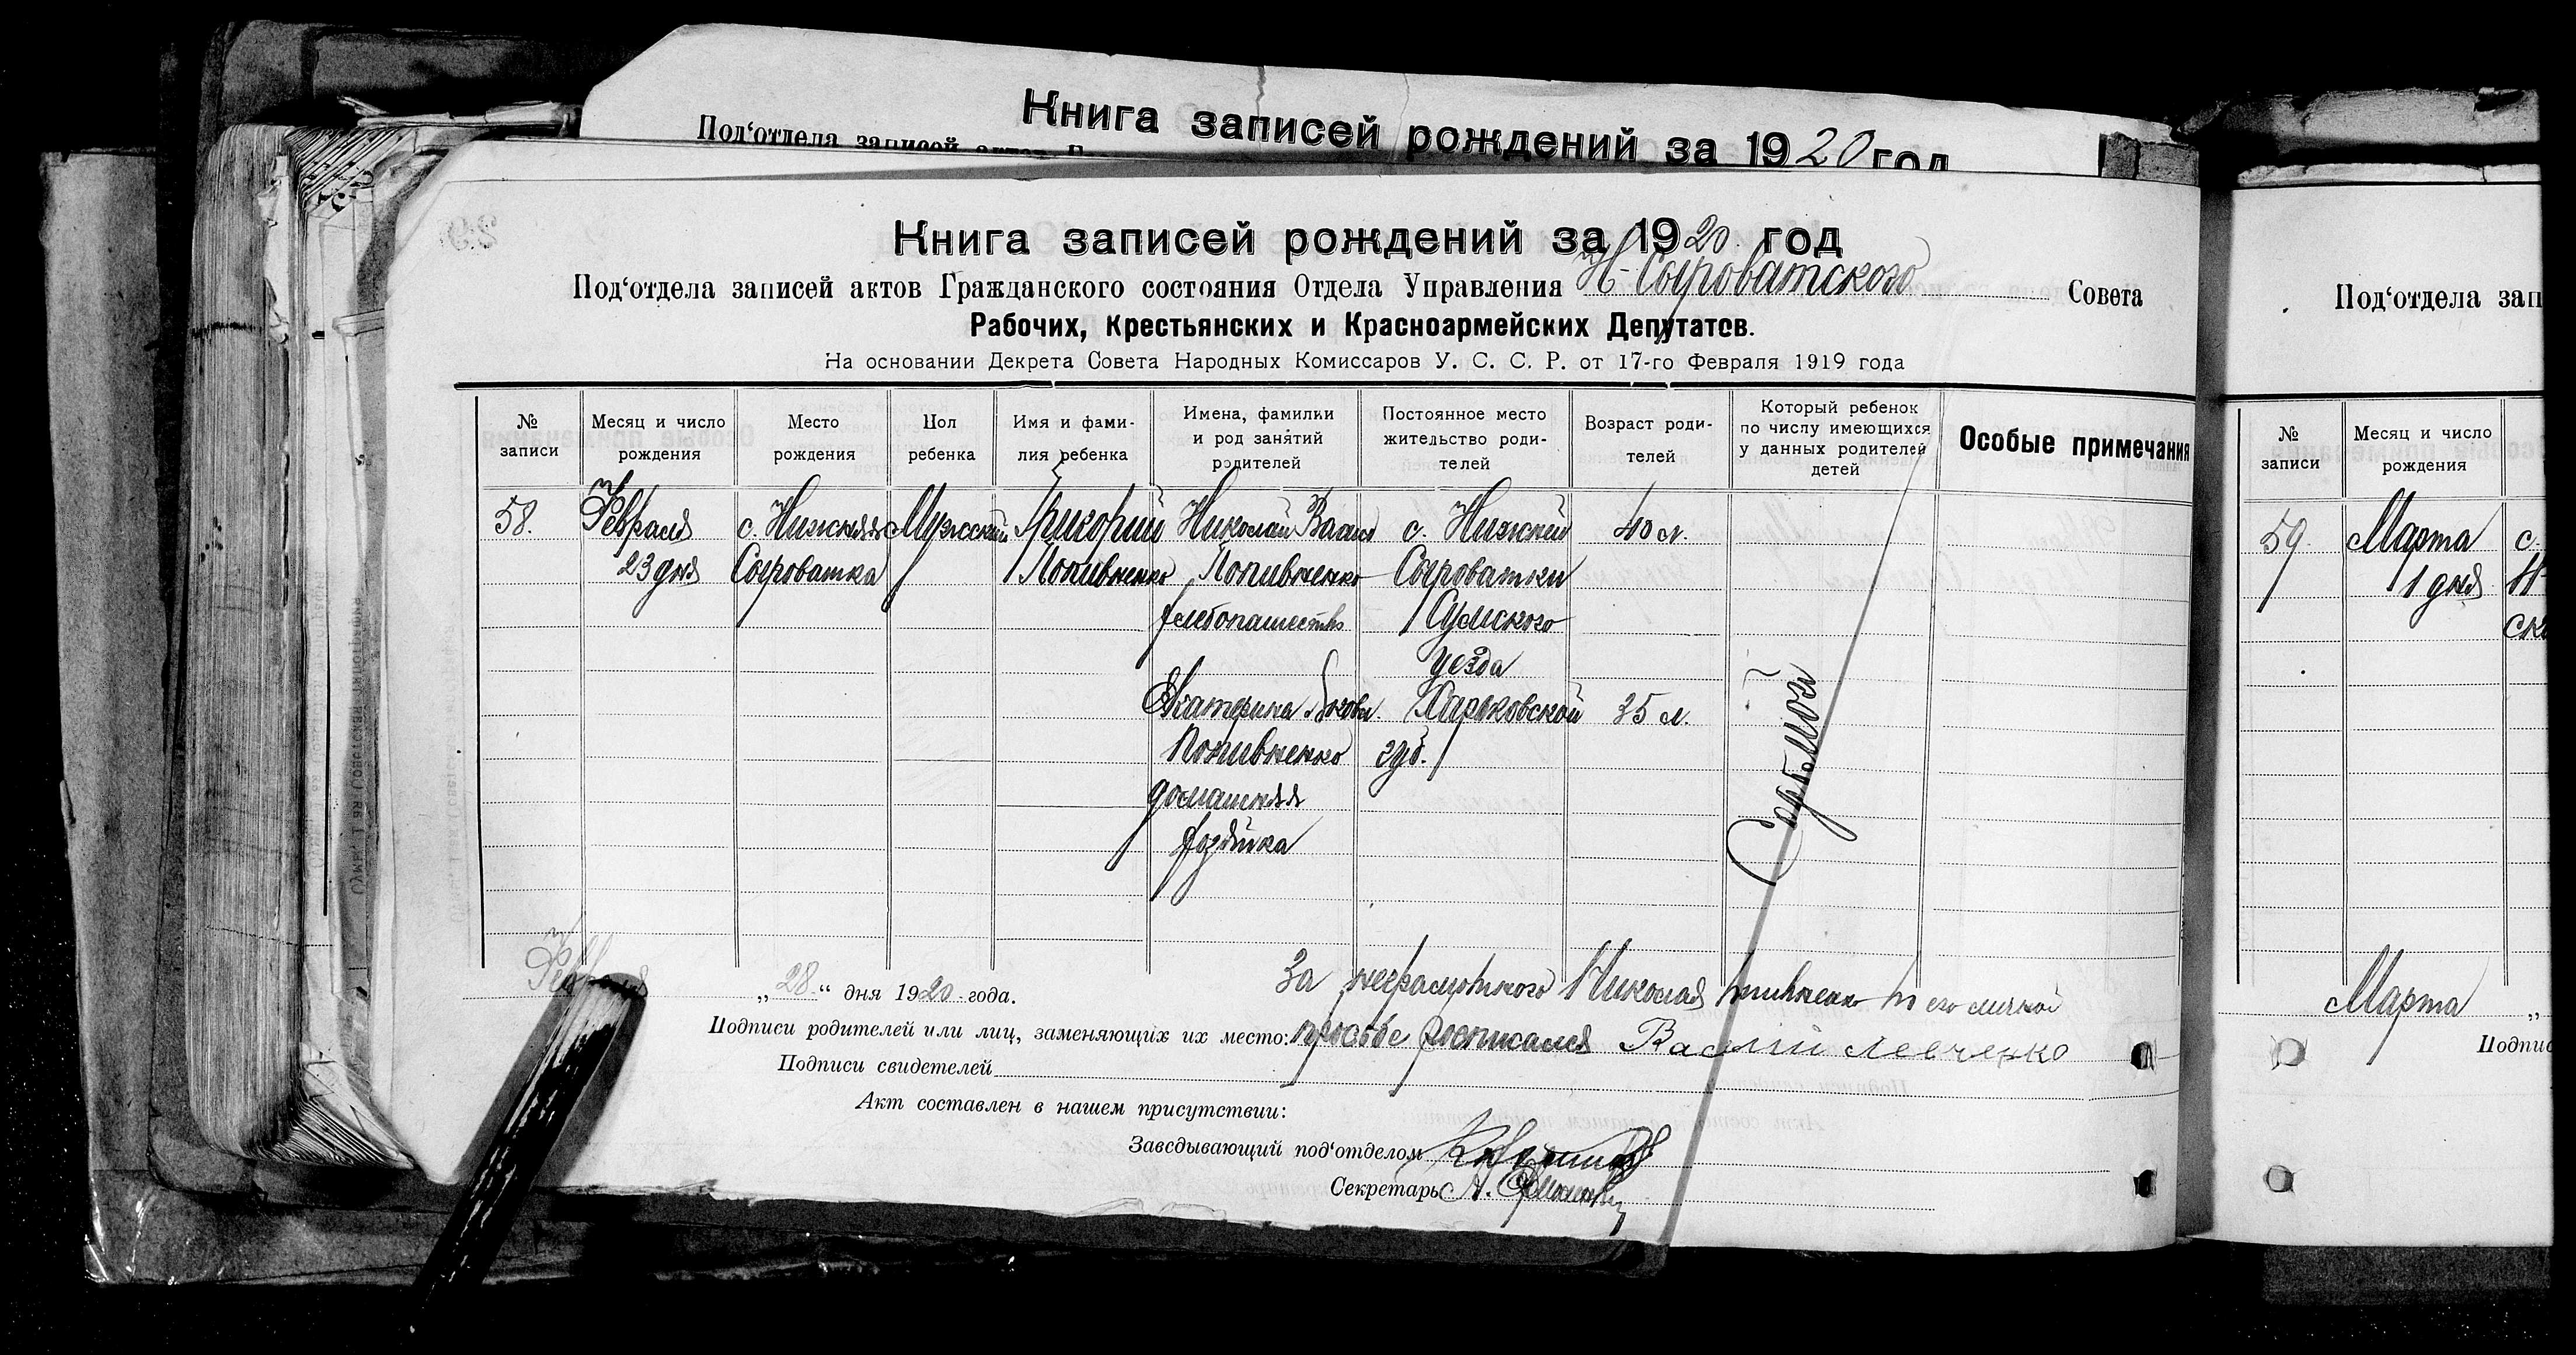 Книга записей рождений за 1920 год
Под‘отдела записей актов
Книга записей рождений за 1920 год
Под‘отдела записей актов Гражданского состояния Отдела Управления Н-Сыроватского Совета
Рабочих, Крестьянских и Красноармейских Депутатов.
На основании Декрета Совета Народных Комиссаров У. С. С. Р. от 17-го Февраля 1919 года
№ записи
Месяц и число рождения
Место рождения
Пол ребенка
Имя и фами-
лия ребенка
Имена, фамилии
и род занятий
родителей
Постоянное место
жительство роди-
телей
Возраст роди-
телей
Который ребенок
по числу имеющихся
у данных родителей
детей
Особые примечания
58.
Февраля
23 дня
с. Нижняя
Сыроватка
Мужский
Григорий
Попивненко
Николай Васил
Попивненко
хлебопашество
Екатерина Яковл.
Попивненко
домашняя
хозяйка
с. Нижний
Сыроватки
Сумского
уезда
Харьковской
губ.
40 л.
35 л.
Седьмой
Февраля „28“ дня 1920 года.
За неграмотного Николая Попивненко по его личной
Подписи родителей или лиц, заменяющих их место: просьбе росписался Василий Левченко
Подписи свидетелей
Акт составлен в нашем присутствии:
Заведывающий под‘отделом
Секретарь
Под‘отдела зап
№ записи
Месяц и число рождения
59
Марта
1 дня
с.
Н-
ск
Марта „
Подпис